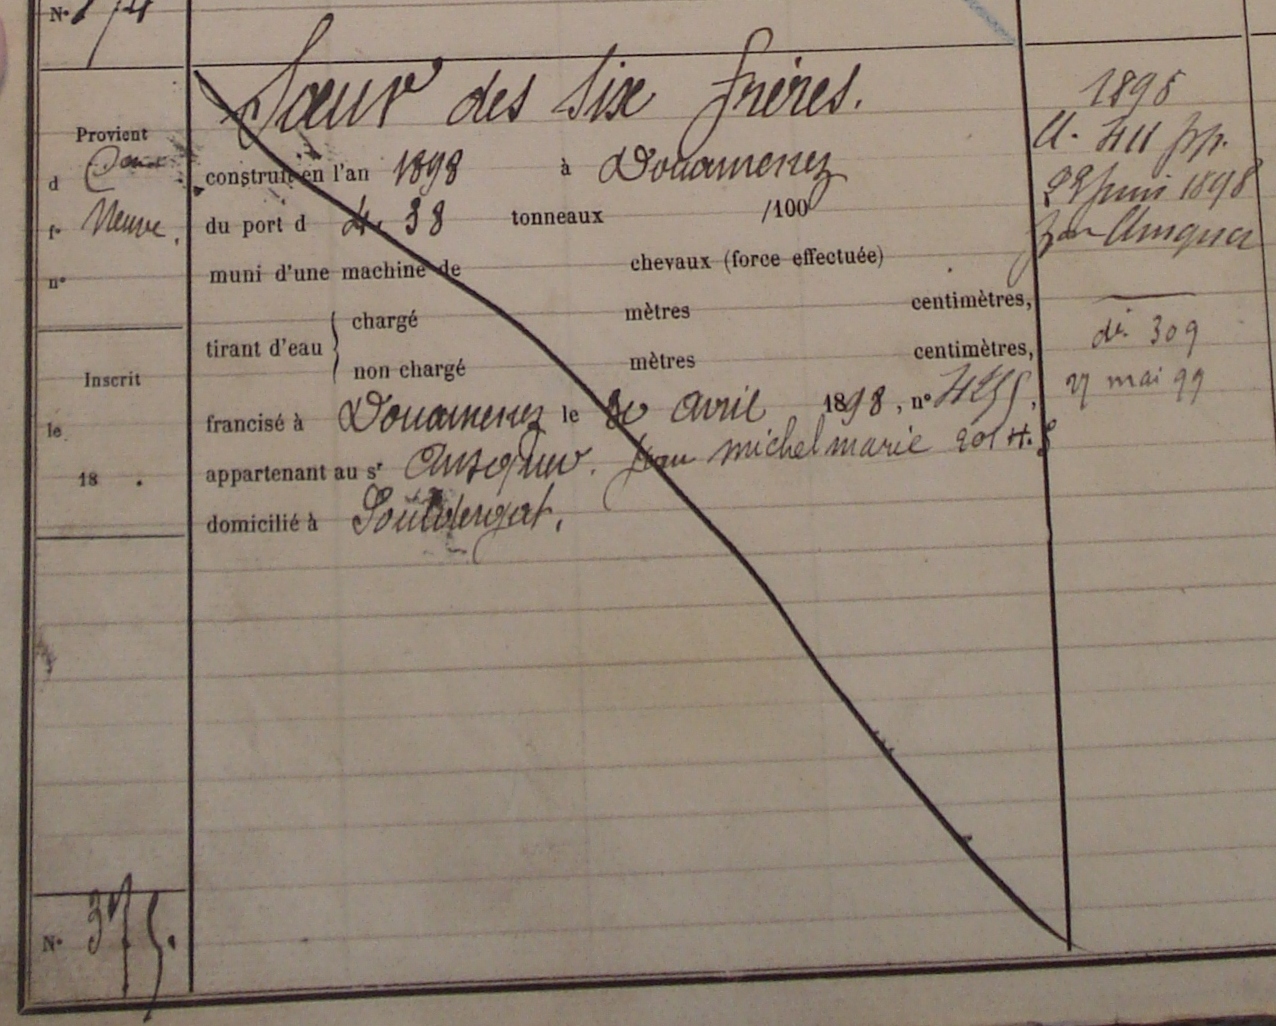 N° 374
Sœur des Six frères.
Provient
d
fº Neuve.
nº
Inscrit
le
18 .
N° 375.
construit en l'an 1898 à Douarnenez
du port d 4. 38 tonneaux /100
muni d'une machine de chevaux (force effectuée)
tirant d'eau { chargé mètres centimètres,
non chargé mètres centimètres,
francisé à Douarnenez le avril 1898, n°
appartenant au sʳ Jean michel marie
domicilié à
1898
22 Juin 1898
di. 309
27 mai 99